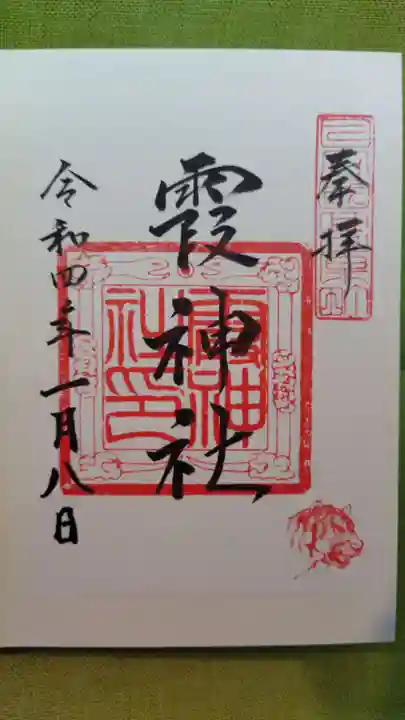 奉拝
霞神社
令和四年一月八日